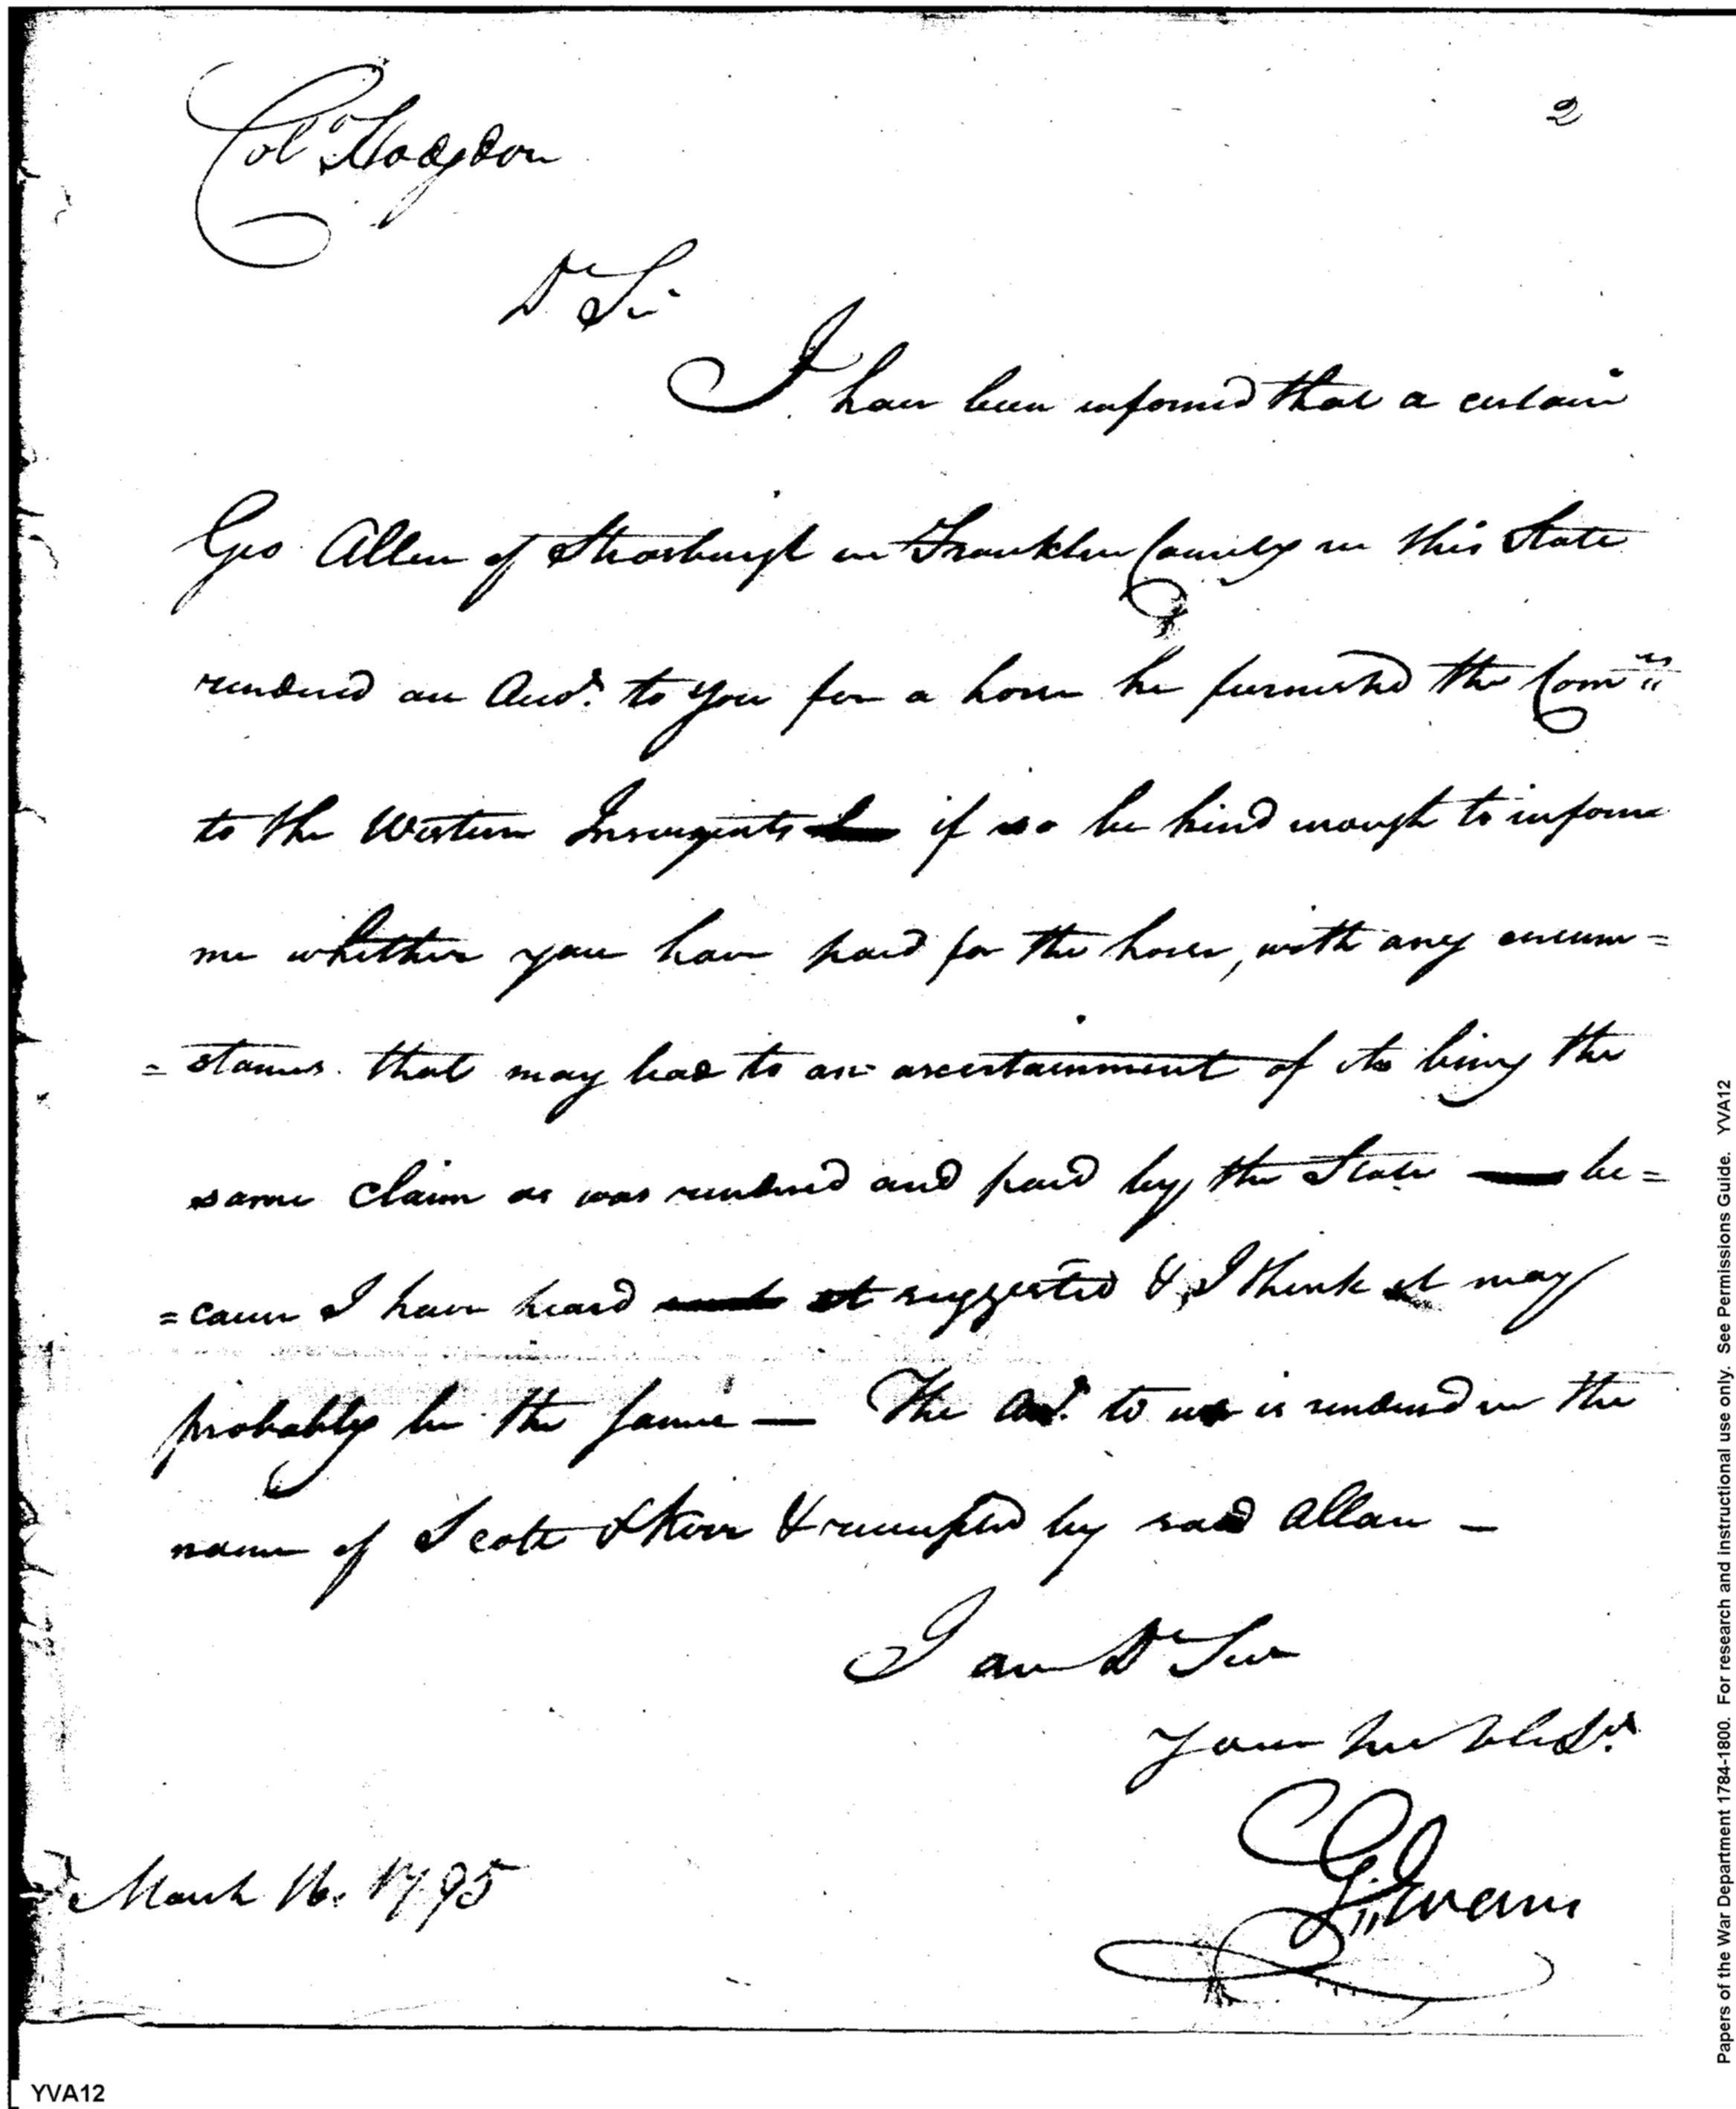 2
Colo Hodgdon
Dr Sir
I have been informed that a certain
Geo Allen of Strasburgh in Franklin County in this State
rendered an Acct. to you for a horse he furnished the Comrs
to the Western Insurgents if so be kind enough to inform
me whether you have paid for the horse, with any circum=
=stances that may lead to an ascertainment of its being the
same claim as was rendered and paid by the State be=
=cause I have heard it suggested & I think it may
probably be the same — The Act. to us is rendered in the
name of Scott & Kerr & receipted by said Allan —
I am Dr Sir
Your hu ble Sr.
March 16. 1795
YVA12
Papers of the War Department 1784-1800. For research and instructional use only. See Permissions Guide. YVA12